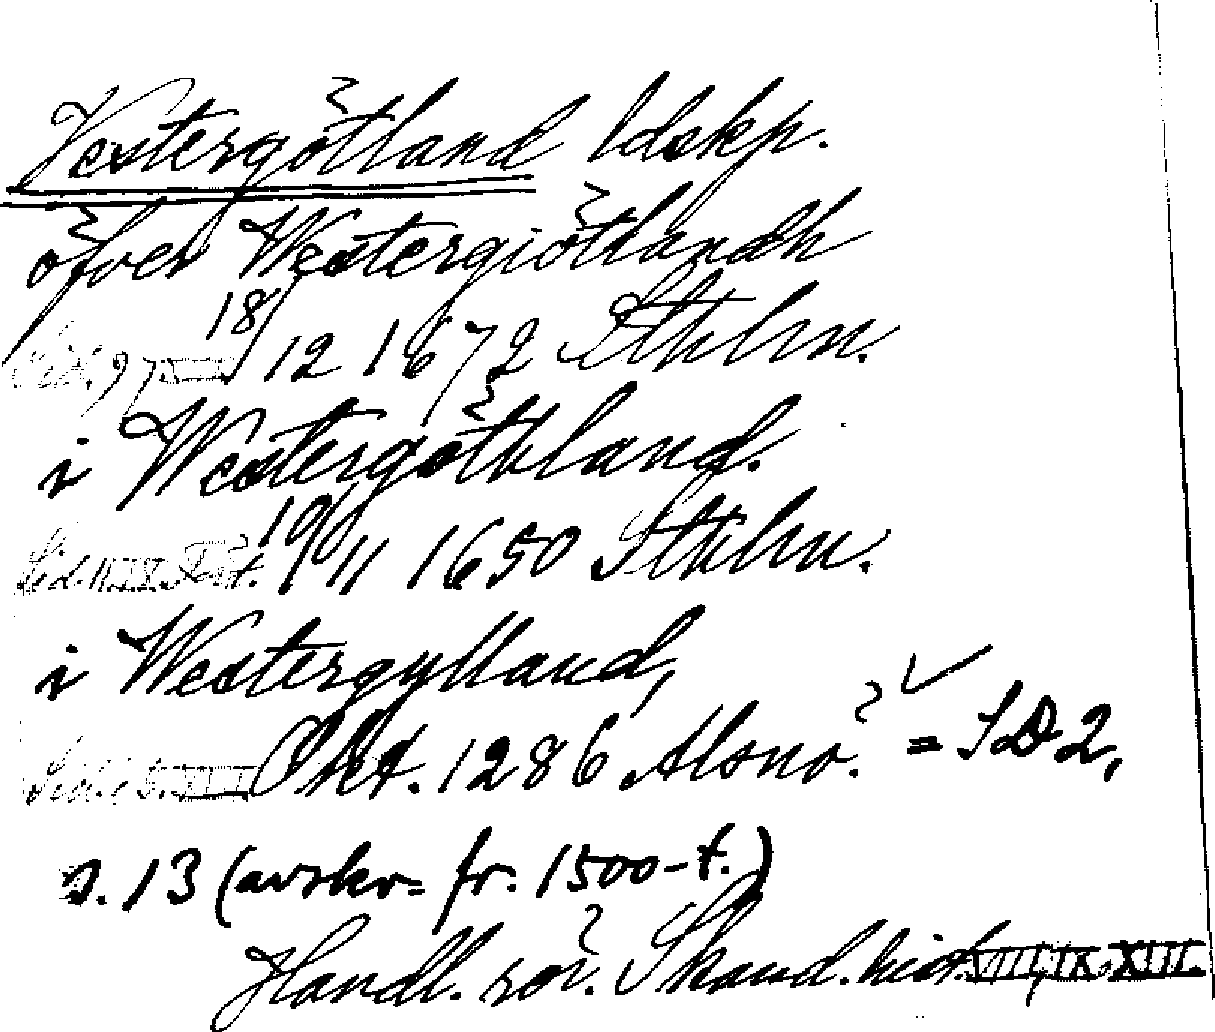 Vestergötland ldskp.
öfver Westergiötlandh
18/12 1672 Sthlm.
i Westergöthland.
19/11 1650 Sthlm.
i Westergylland,
Okt. 1286 Alsnö. = SD 2,
s. 13 (avskr. fr. 1500-t.)
Handl. rör. Skand. hist. VIII, IX, XIII.